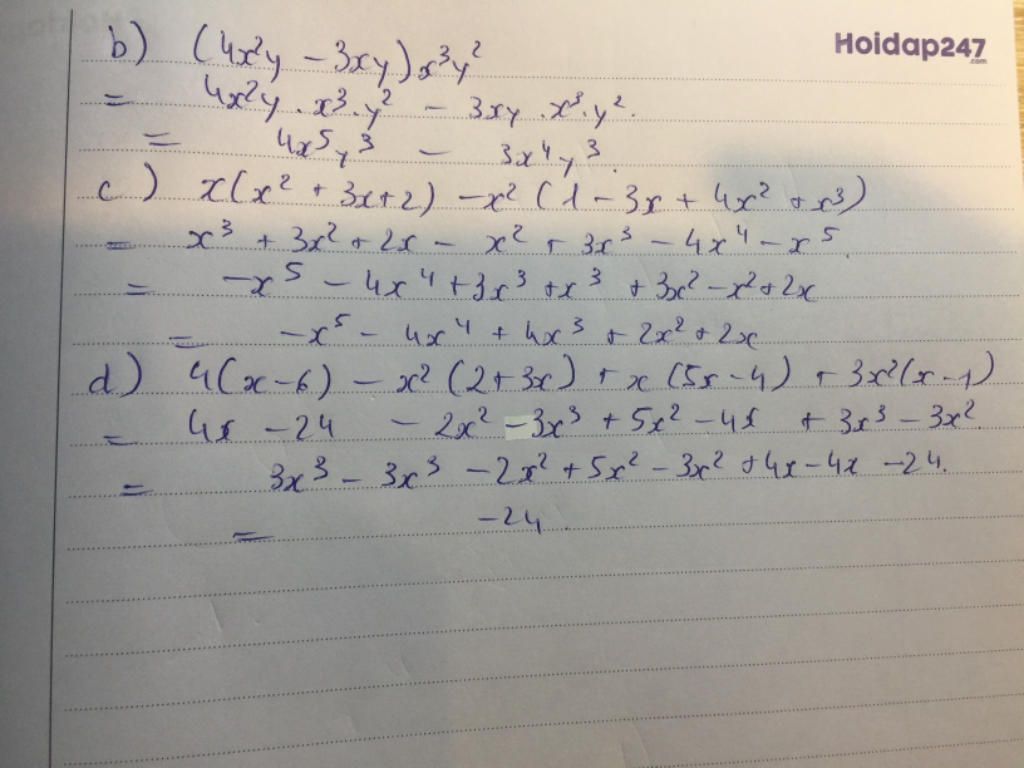 Hoidap247
.com
b) (4x²y - 3xy)x³y²
= 4x²y . x³. y² - 3xy . x³. y².
= 4x⁵y³ - 3x⁴y³.
c) x(x² + 3x+2) -x² (1 - 3x + 4x² + x³)
= x³ + 3x² + 2x - x² + 3x³ - 4x⁴ - x⁵.
= -x⁵ - 4x⁴ + 3x³ + x³ + 3x² - x² + 2x
= -x⁵ - 4x⁴ + 4x³ + 2x² + 2x
d) 4(x-6) - x² (2+3x) + x (5x-4) + 3x²(x-1)
= 4x - 24 - 2x² - 3x³ + 5x² - 4x + 3x³ - 3x².
= 3x³ - 3x³ - 2x² + 5x² - 3x² + 4x - 4x - 24.
= -24.